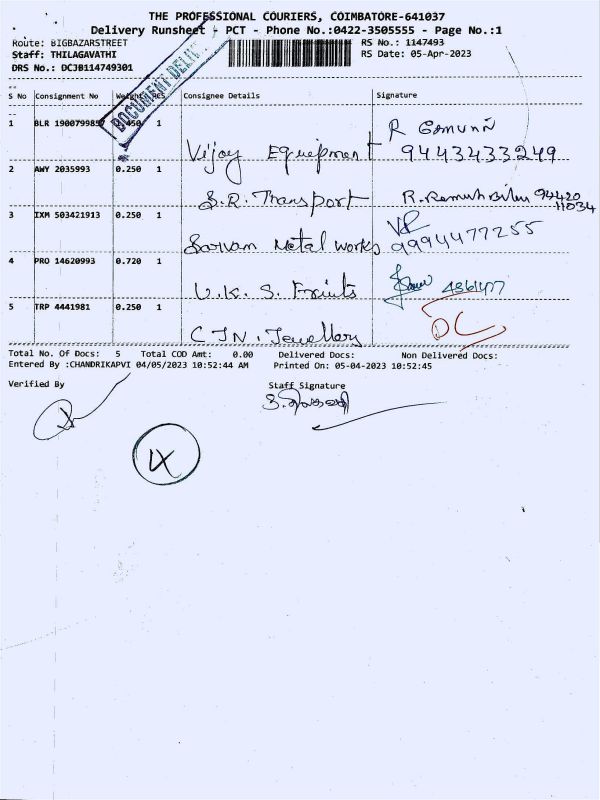 THE PROFESSIONAL COURIERS, COIMBATORE-641037
Delivery Runsheet - PCT - Phone No.:0422-3505555 - Page No.:1
Route: BIGBAZARSTREET RS No.: 1147493
Staff: THILAGAVATHI RS Date: 05-Apr-2023
DRS No.: DCJB114749301
DOCUMENT
S No Consignment No Weight PCS Consignee Details Signature
1 BLR 1900799857 1
Vijay Equipment 9443433249
2 AWY 2035993 0.250 1
S.R. Transport 94420
11034
3 IXM 503421913 0.250 1
Sarvam Metal works 9994477255
4 PRO 14620993 0.720 1
U.K. S. Fruits
5 TRP 4441981 0.250 1
DC
C JN. Jewellery
Total No. Of Docs: 5 Total COD Amt: 0.00 Delivered Docs: Non Delivered Docs:
Entered By :CHANDRIKAPVI 04/05/2023 10:52:44 AM Printed On: 05-04-2023 10:52:45
Verified By Staff Signature